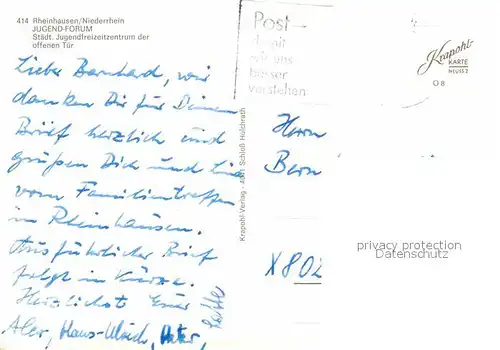 414 Rheinhausen/Niederrhein
JUGEND-FORUM
Städt. Jugendfreizeitzentrum der
offenen Tür
Lieber Bernhard, wir
danken Dir für Deinen
Brief herzlich und
grüßen Dich und
vom Familientreffen
in Rheinhausen.
Ausführlicher Brief
folgt in Kürze.
Herzlichst Euer
Hans-Ulrich, Peter,
Krapohl-Verlag - 4041 Schloß Hülchrath
Post-
damit
wir uns
besser
verstehen
Krapohl-
KARTE
NEUSS 2
08
Herrn
Bern
X 802
privacy protection
Datenschutz